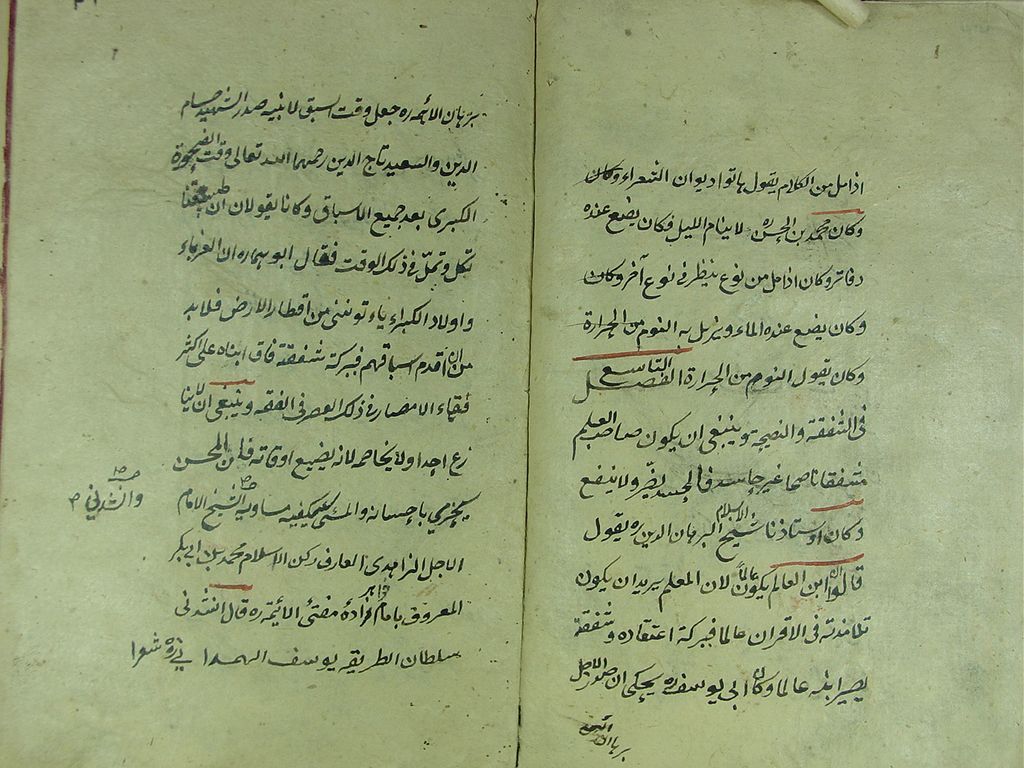 اذا مل من الكلام يقول هاتوا ديوان الشعراء وكان
وكان محمد بن الحسن ره لا ينام الليل فكان يضع عنده
دفاتر وكان اذا مل من نوع ينظر فى نوع آخر وكان
وكان يضع عنده الماء ويزيل به النوم من الحرارة
وكان يقول النوم من الحرارة الفصل التاسع
فى الشفقة والنصيحة وينبغى ان يكون صاحب العلم
مشفقا ناصحا غير حاسد فالحسد يضر ولا ينفع
وكان اوستاذنا شيخ الاسلام البرهان الدين ره يقول
قالوا ان ابن العالم يكون عالما لان المعلم يريد ان يكون
تلامذته فى الاقران عالما فببركة اعتقاده وشفقته
يصير ابنه عالما وكان ابى يوسف ره يحكى ان صدر الاجل
برهان الائمه
برهان الائمه ره جعل وقت السبق لابنيه صدر الشهيد حسام
الدين والسعيد تاج الدين رحمهما الله تعالى وقت الضحوة
الكبرى بعد جميع الاسباق وكانا يقولان ان طبيعتنا
تكل وتمل فى ذلك الوقت فقال ابوهما ره ان الغرباء
واولاد الكبراء ياء توننى من اقطار الارض فلا بد
من ان اقدم اسباقهم فببركة شفقته فاق ابناه على اكثر
فقهاء الامصار فى ذلك العصر فى الفقه وينبغى ان لا ينا
زع احدا ولا يخاصمه لانه يضيع اوقاته فان المحسن
يجزي بإحسانه والمسئ سيكفيه مساويه الشيخ الامام
الاجل الزاهدى العارف ركن الاسلام محمد بن ابى بكر
المعروف بامام خواهر زادهٔ مفتئ الائمة ره قال انشدنى
سلطان الطريقه يوسف الهمدانى ره شعرا
وانشدني